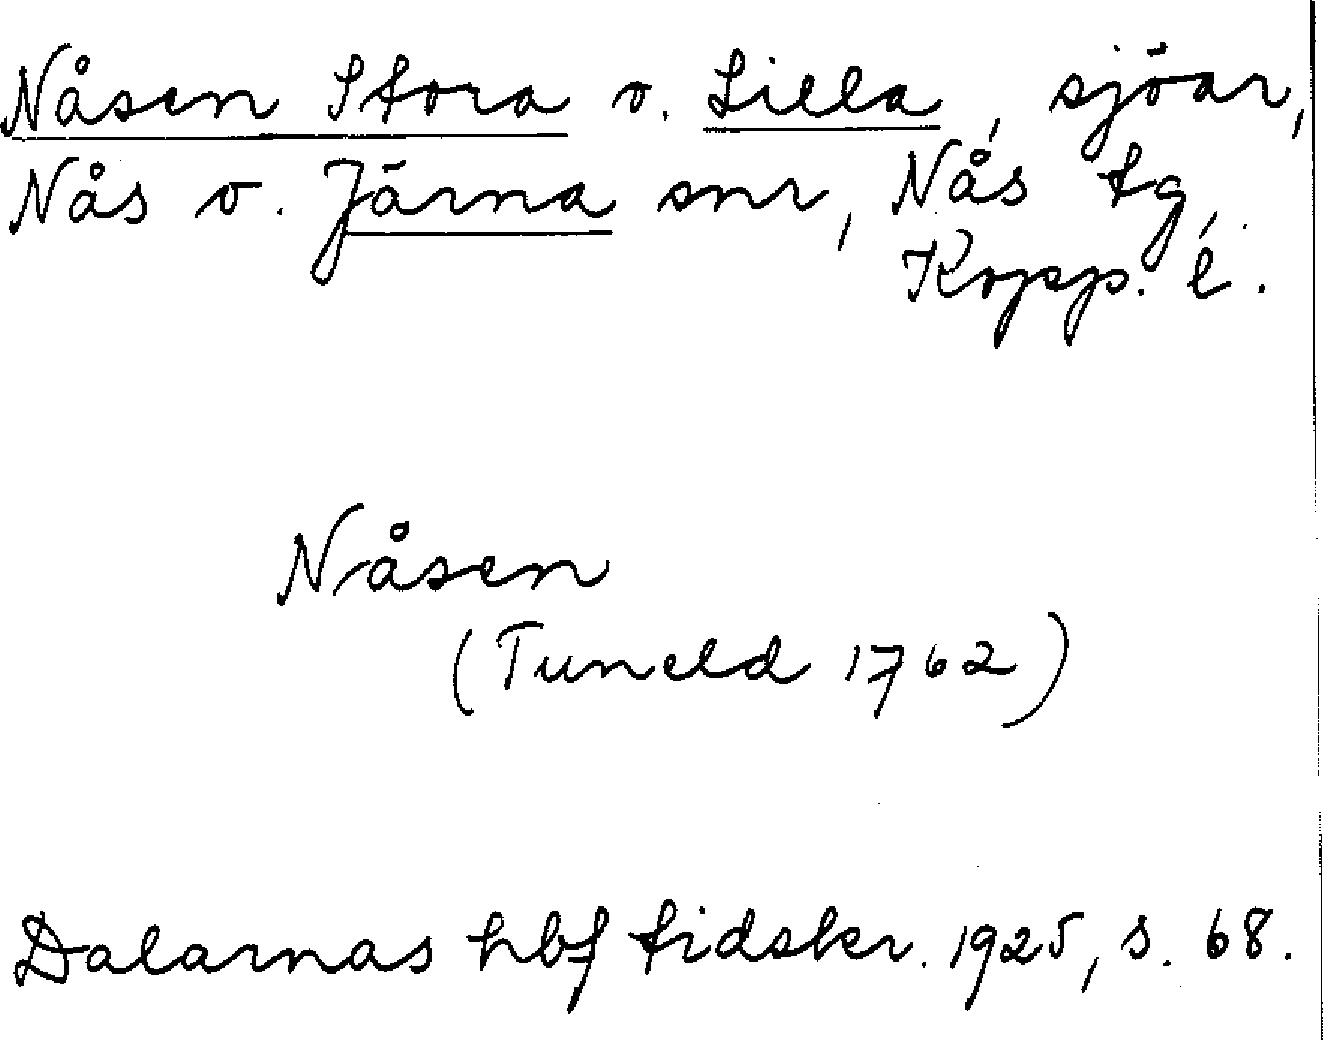 Nåsen Stora o. Lilla, sjöar,
Nås o. Järna snr, Nås tg,
Kopp. l.
Nåsen
(Tuneld 1762)
Dalarnas hbf tidskr. 1925, s. 68.